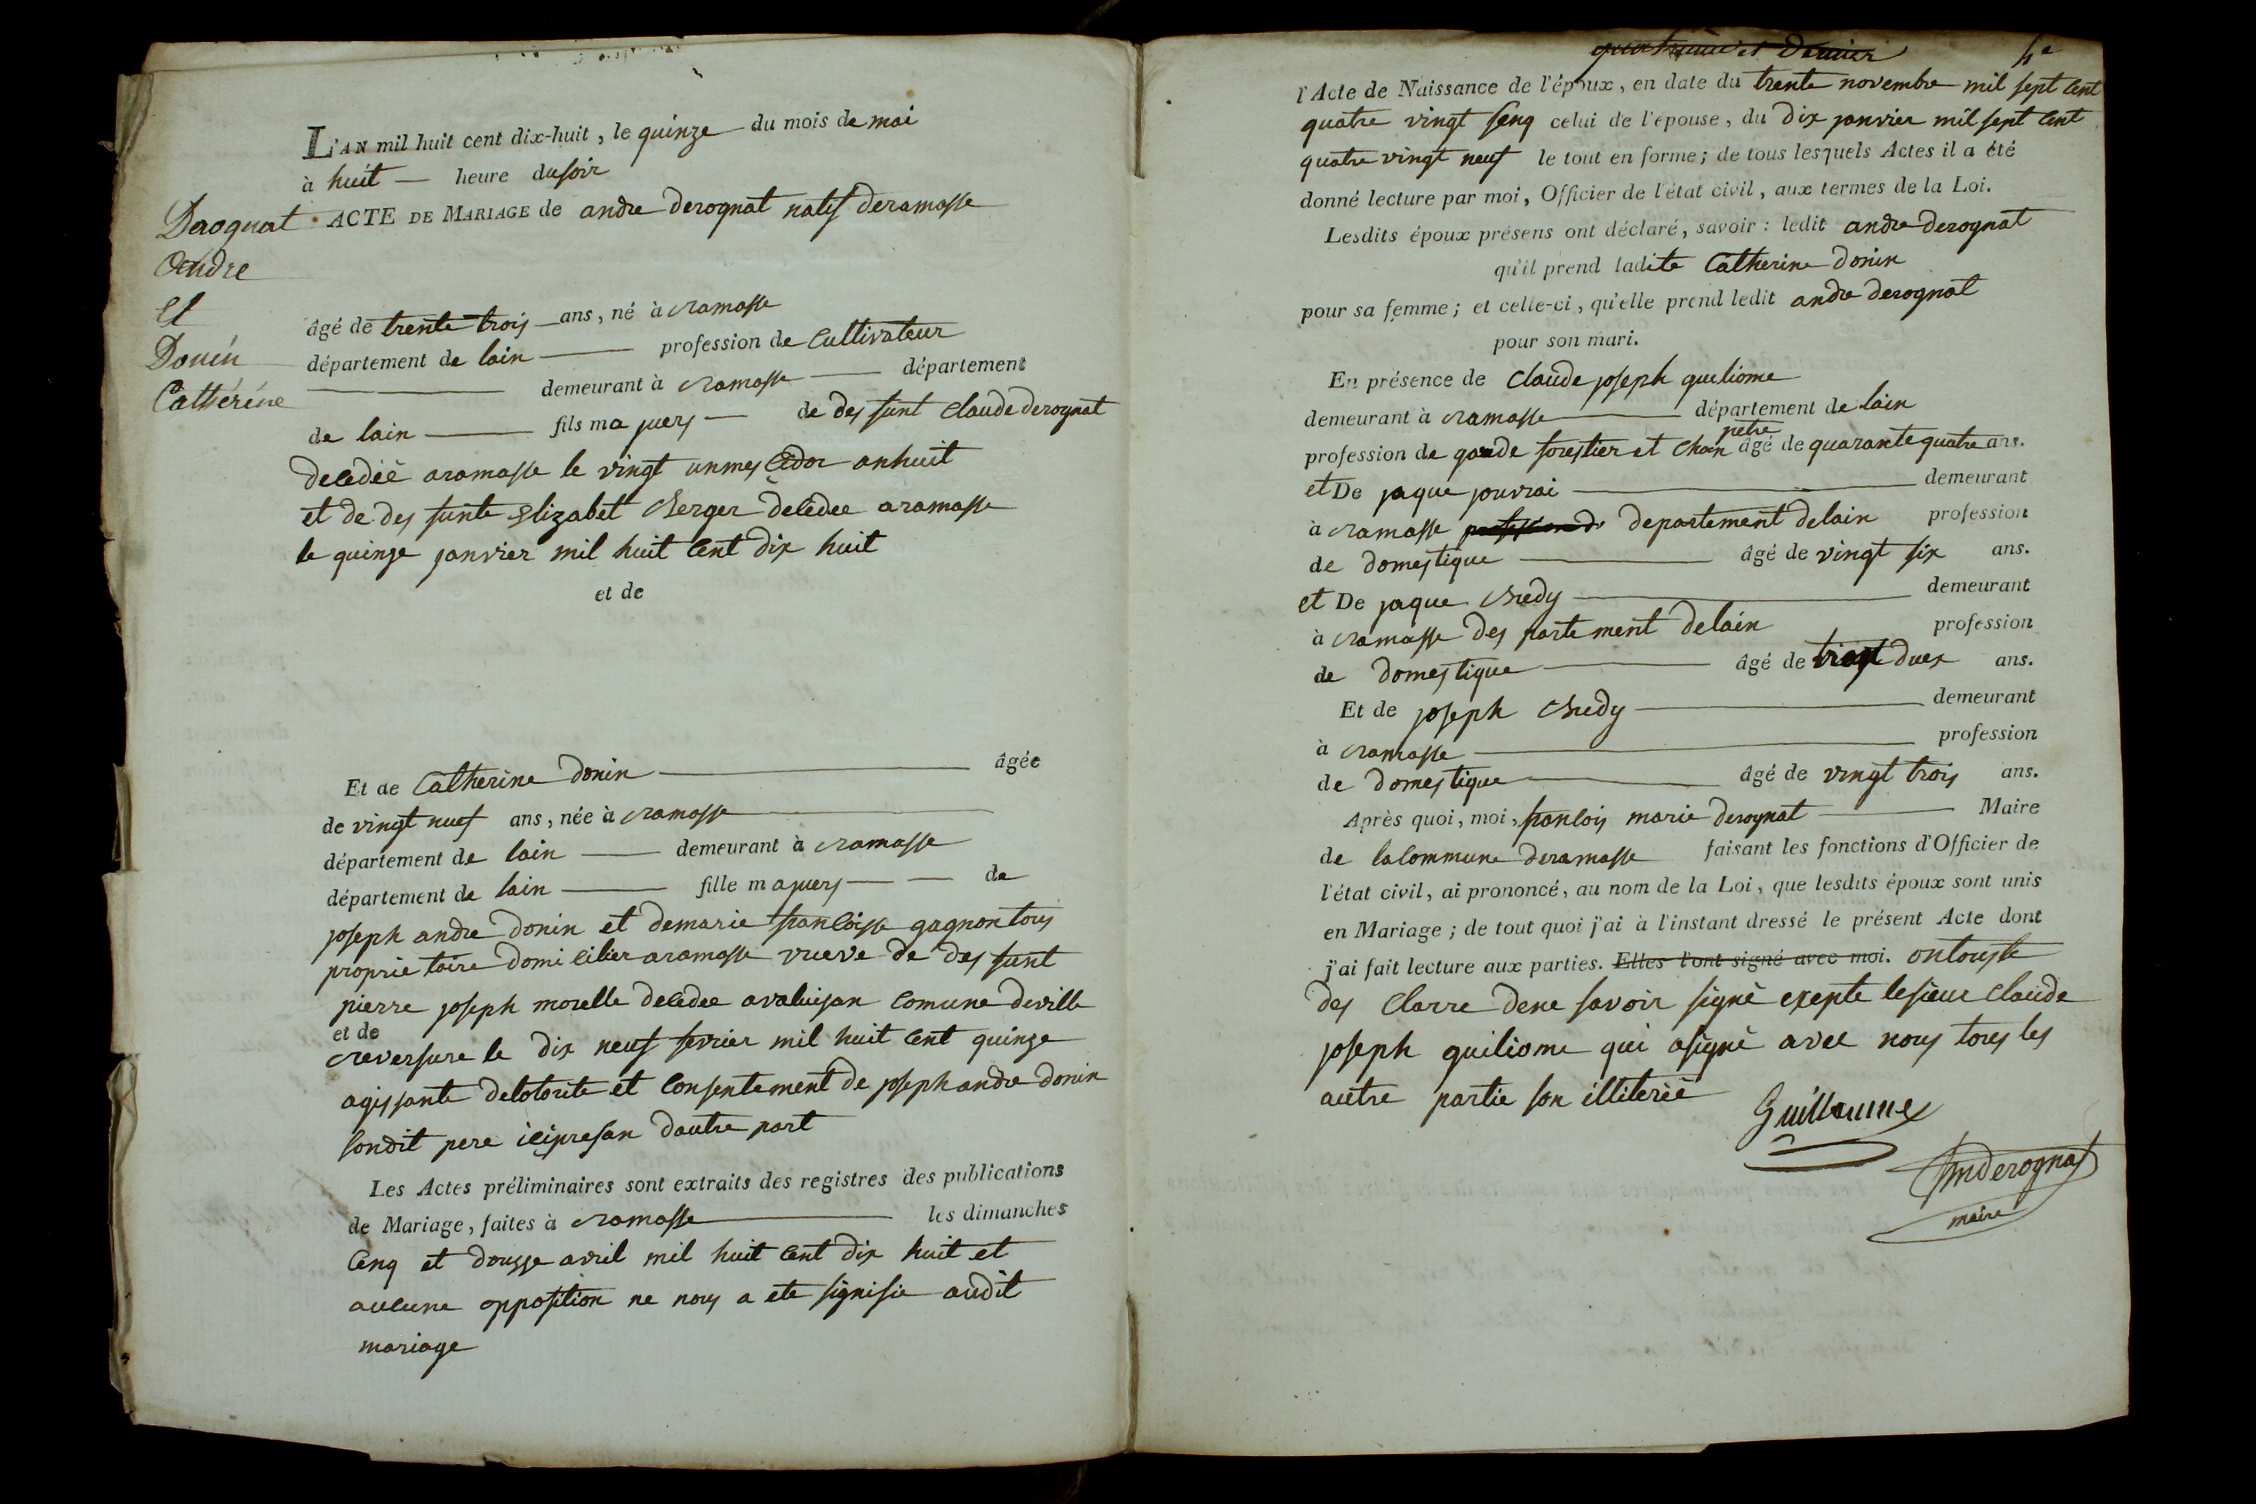 L'AN mil huit cent dix-huit, le quinze du mois de mai
à huit — heure du soir
Derognat
Andre
et
Donin
Catherine
ACTE DE MARIAGE de andre derognat natif deramasse
âgé de trente trois — ans, né à ramasse
département de lain — profession de Cultivateur
— demeurant à ramasse — département
de lain — fils ma juers — de des funt Claude derognat
decedéé aramasse le vingt un mes cidor an huit
et de des funte Elizabet Cherger décedee aramasse
le quinze janvier mil huit Cent dix huit
et de
Et de Catherine donin — âgée
de vingt nuef ans, née à ramasse
département de lain — demeurant à ramasse
département de lain — fille majuers — — de
joseph andre donin et demarie francoisse gagnon tous
proprietaire domicilier aramasse vueve de des funt
pierre joseph morelle decedee avaluisan Comune deville
et de
reversure le dix neuf fevrier mil huit Cent quinze
agissante delotorite et Consentement de joseph andre donin
sondit pere icipresan dautre part
Les Actes préliminaires sont extraits des registres des publications
de Mariage, faites à ramasse — les dimanches
Cenq et dousse avril mil huit Cent dix huit et
aucune opposition ne nous a ete signifie audit
mariage
quatrieme et dernier
4e
l'Acte de Naissance de l'époux, en date du trente novembre mil sept Cent
quatre vingt senq celui de l'épouse, du dix janvier mil sept Cent
quatre vingt neuf le tout en forme; de tous lesquels Actes il a été
donné lecture par moi, Officier de l'état civil, aux termes de la Loi.
Lesdits époux présens ont déclaré, savoir: ledit andre derognat
qu'il prend ladite Catherine donin
pour sa femme; et celle-ci, qu'elle prend ledit andre derognat
pour son mari.
En présence de Claude joseph guiliome
demeurant à ramasse — département de lain
petre
profession de garde forestier et Chan âgé de quarante quatre ans.
et De jaque jouvrai — demeurant
à ramasse departement delain profession
de domestique — âgé de vingt six ans.
et De jaque Chredy — demeurant
à ramasse des partement delain profession
de domestique — âgé de vingt dues ans.
Et de joseph Chredy — demeurant
à ramasse — profession
de domestique — âgé de vingt trois ans.
Après quoi, moi, francois marie derognat — Maire
de la Commune deramasse faisant les fonctions d'Officier de
l'état civil, ai prononcé, au nom de la Loi, que lesdits époux sont unis
en Mariage; de tout quoi j'ai à l'instant dressé le présent Acte dont
j'ai fait lecture aux parties. Elles l'ont signé avec moi. ontouste
des Clarre dene savoir signé exepte lesieur Claude
joseph guiliome qui asigné avec nous tous les
autre partie son illiteréé
Guillaume
fmderognat
maire